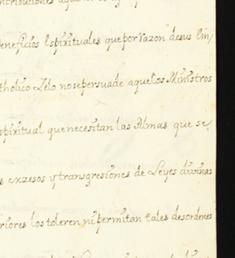 ntribuciones aqu
beneficios espirituales que por razon de sus Em
tholico Zelo no se persuade aque los Ministros
spiritual que necesitan las Almas que se
s exzesos y transgresiones de Leyes divinas
riores los toleren ni permitan tales desordenes